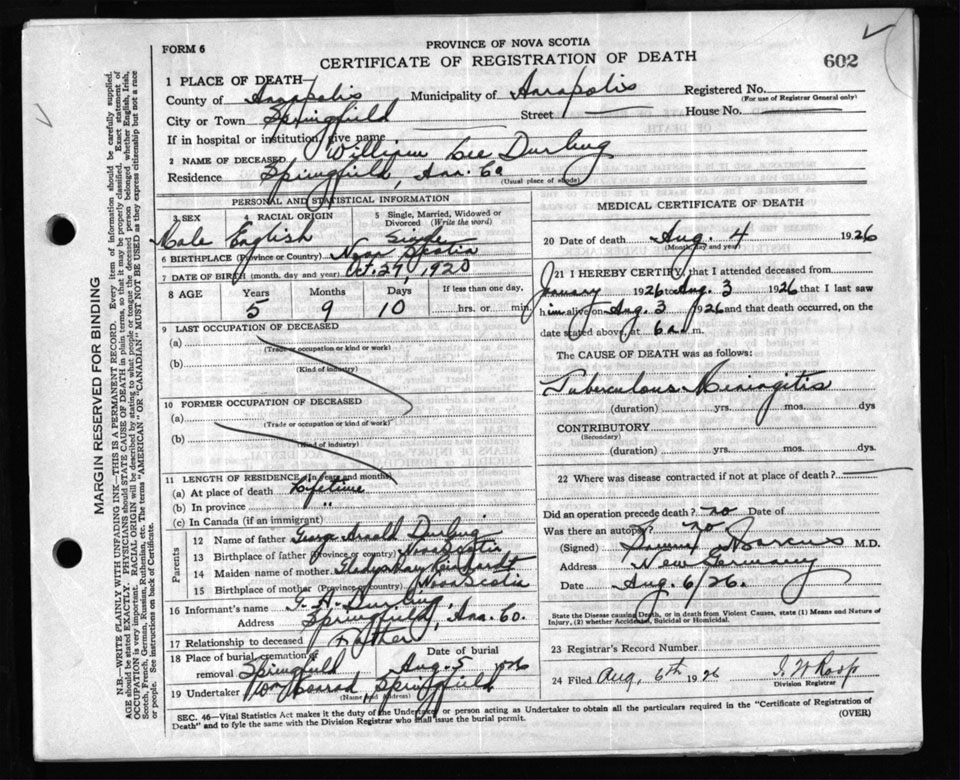 FORM 6
PROVINCE OF NOVA SCOTIA
CERTIFICATE OF REGISTRATION OF DEATH
602
1 PLACE OF DEATH—
County of Annapolis Municipality of Annapolis Registered No.
(For use of Registrar General only)
City or Town Springfield Street — House No. —
If in hospital or institution, give name
2 NAME OF DECEASED William Lee Durling
Residence Springfield, Ann. Co
(Usual place of abode)
PERSONAL AND STATISTICAL INFORMATION
3 SEX 4 RACIAL ORIGIN 5 Single, Married, Widowed or Divorced (Write the word)
Male English Single
6 BIRTHPLACE (Province or Country) Nova Scotia
7 DATE OF BIRTH (month, day and year) Oct. 27, 1920
8 AGE Years Months Days If less than one day,
5 9 10 hrs. or min.
9 LAST OCCUPATION OF DECEASED
(a)
(Trade or occupation or kind or work)
(b)
(Kind of industry)
10 FORMER OCCUPATION OF DECEASED
(a)
(Trade or occupation or kind of work)
(b)
(Kind of industry)
11 LENGTH OF RESIDENCE (In years and months)
(a) At place of death Lifetime
(b) In province " "
(c) In Canada (if an immigrant)
Parents
12 Name of father George Arnold Durling
13 Birthplace of father (Province or country) Nova Scotia
14 Maiden name of mother Gladys Mary
15 Birthplace of mother (Province or Country) Nova Scotia
16 Informant's name G. A. Durling
Address Springfield, Ann. Co.
17 Relationship to deceased Father
18 Place of burial, cremation or removal Date of burial
Springfield Aug. 5 1926
19 Undertaker Conrad, Springfield
(Name and address)
MEDICAL CERTIFICATE OF DEATH
20 Date of death Aug. 4 1926
(Month, day and year)
21 I HEREBY CERTIFY, that I attended deceased from
January 1926 to Aug. 3 1926 that I last saw
him alive on Aug. 3 1926 and that death occurred, on the
date stated above, at 6 a. m.
The CAUSE OF DEATH was as follows:
Tuberculous Meningitis
(duration) yrs. mos. dys
CONTRIBUTORY
(Secondary)
(duration) yrs. mos. dys
22 Where was disease contracted if not at place of death?
Did an operation precede death? no Date of
Was there an autopsy? no.
(Signed) Marcus M.D.
Address New Germany
Date Aug. 6/26.
State the Disease causing Death, or in death from Violent Causes, state (1) Means and Nature of
Injury, (2) whether Accidental, Suicidal or Homicidal.
23 Registrar's Record Number
24 Filed Aug. 6th 1926
Division Registrar
SEC. 46—Vital Statistics Act makes it the duty of the Undertaker or person acting as Undertaker to obtain all the particulars required in the "Certificate of Registration of
Death" and to fyle the same with the Division Registrar who shall issue the burial permit.
(OVER)
MARGIN RESERVED FOR BINDING
N.B.—WRITE PLAINLY WITH UNFADING INK—THIS IS A PERMANENT RECORD. Every item of information should be carefully supplied.
AGE should be stated EXACTLY. PHYSICIANS should STATE CAUSE OF DEATH in plain terms, so that it may be properly classified. Exact statement of
OCCUPATION is very important. RACIAL ORIGIN will be described by stating to what people or tongue the deceased person belonged whether English, Irish,
Scotch, French, German, Russian, Ruthenian, etc. The terms "AMERICAN" or "CANADIAN" MUST NOT BE USED as they express citizenship but not a race
or people. See instructions on back of Certificate.